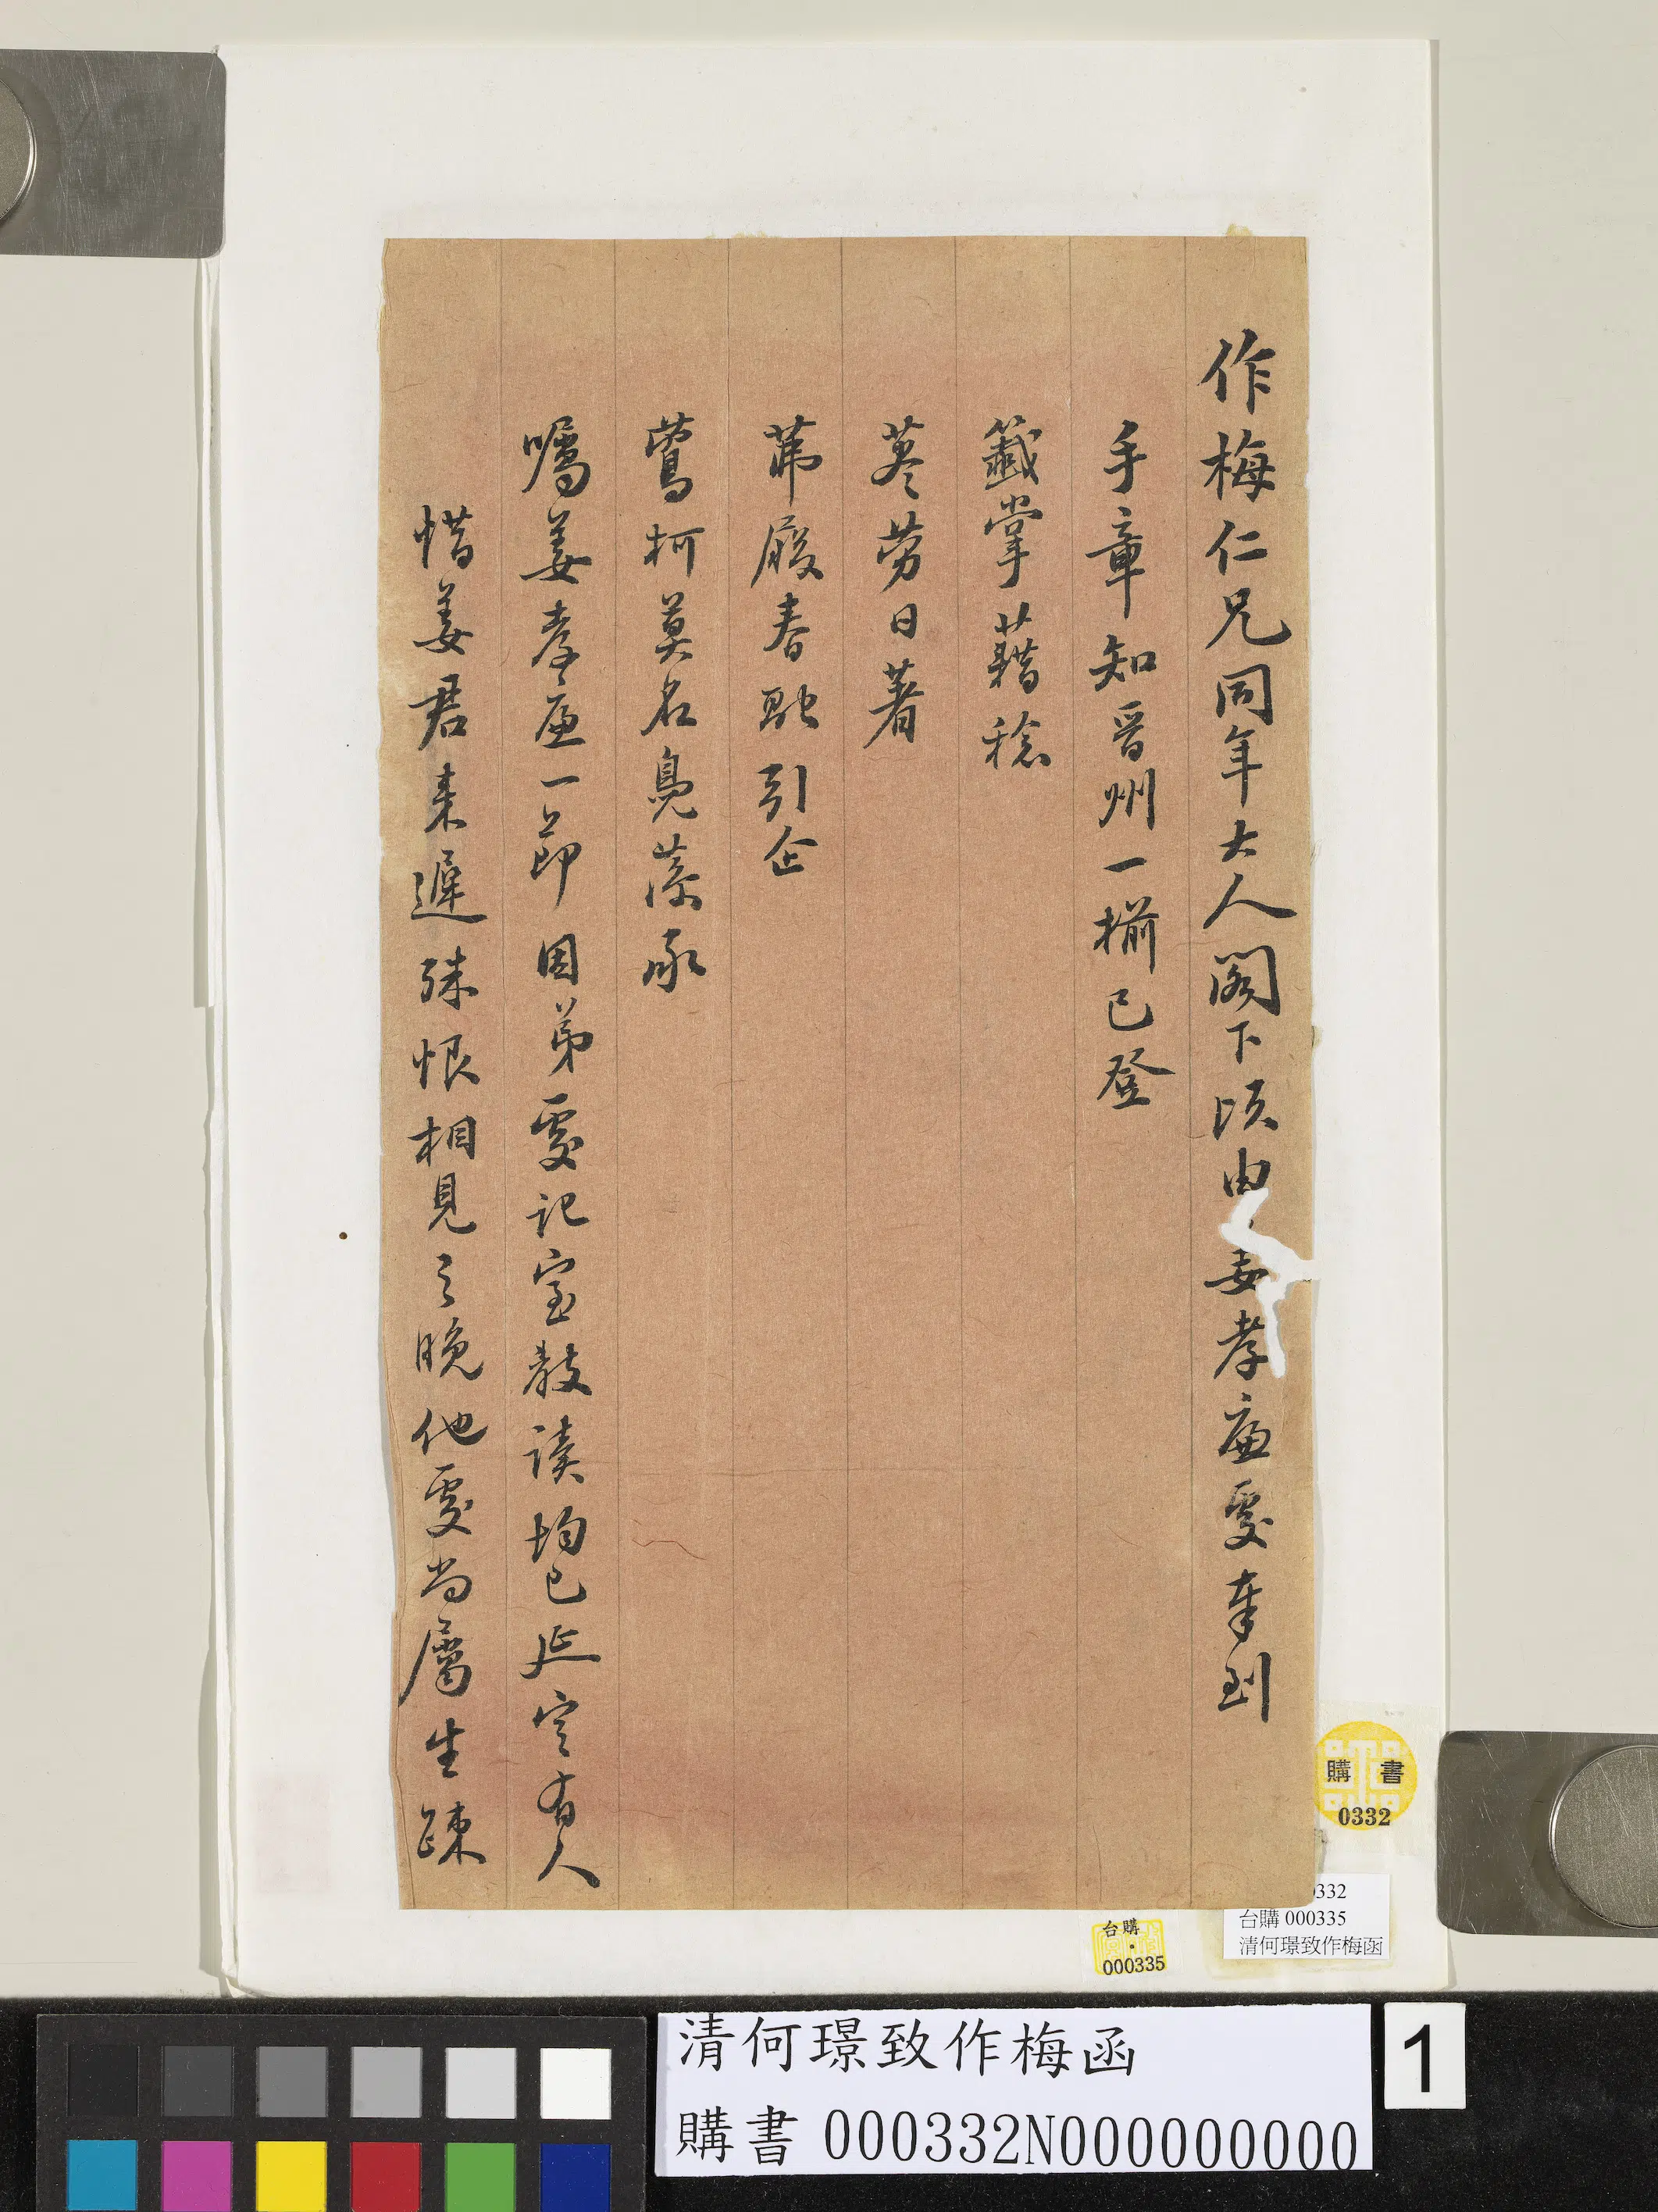 作梅仁兄同年大人閣下頃由姜孝廉處奉到
手章知晉州一槅已登
籤掌藉稔
荩勞日著
茀履春融引企
鶯柯莫名鳧藻承
囑姜孝廉一節因弟處記室教讀均已延定有人
惜姜君来遲殊恨相見之晚他處尚屬生疎
購書
0332
332
台購 000335
清何璟致作梅函
台購
000335
清何璟致作梅函
購書 000332N000000000
1